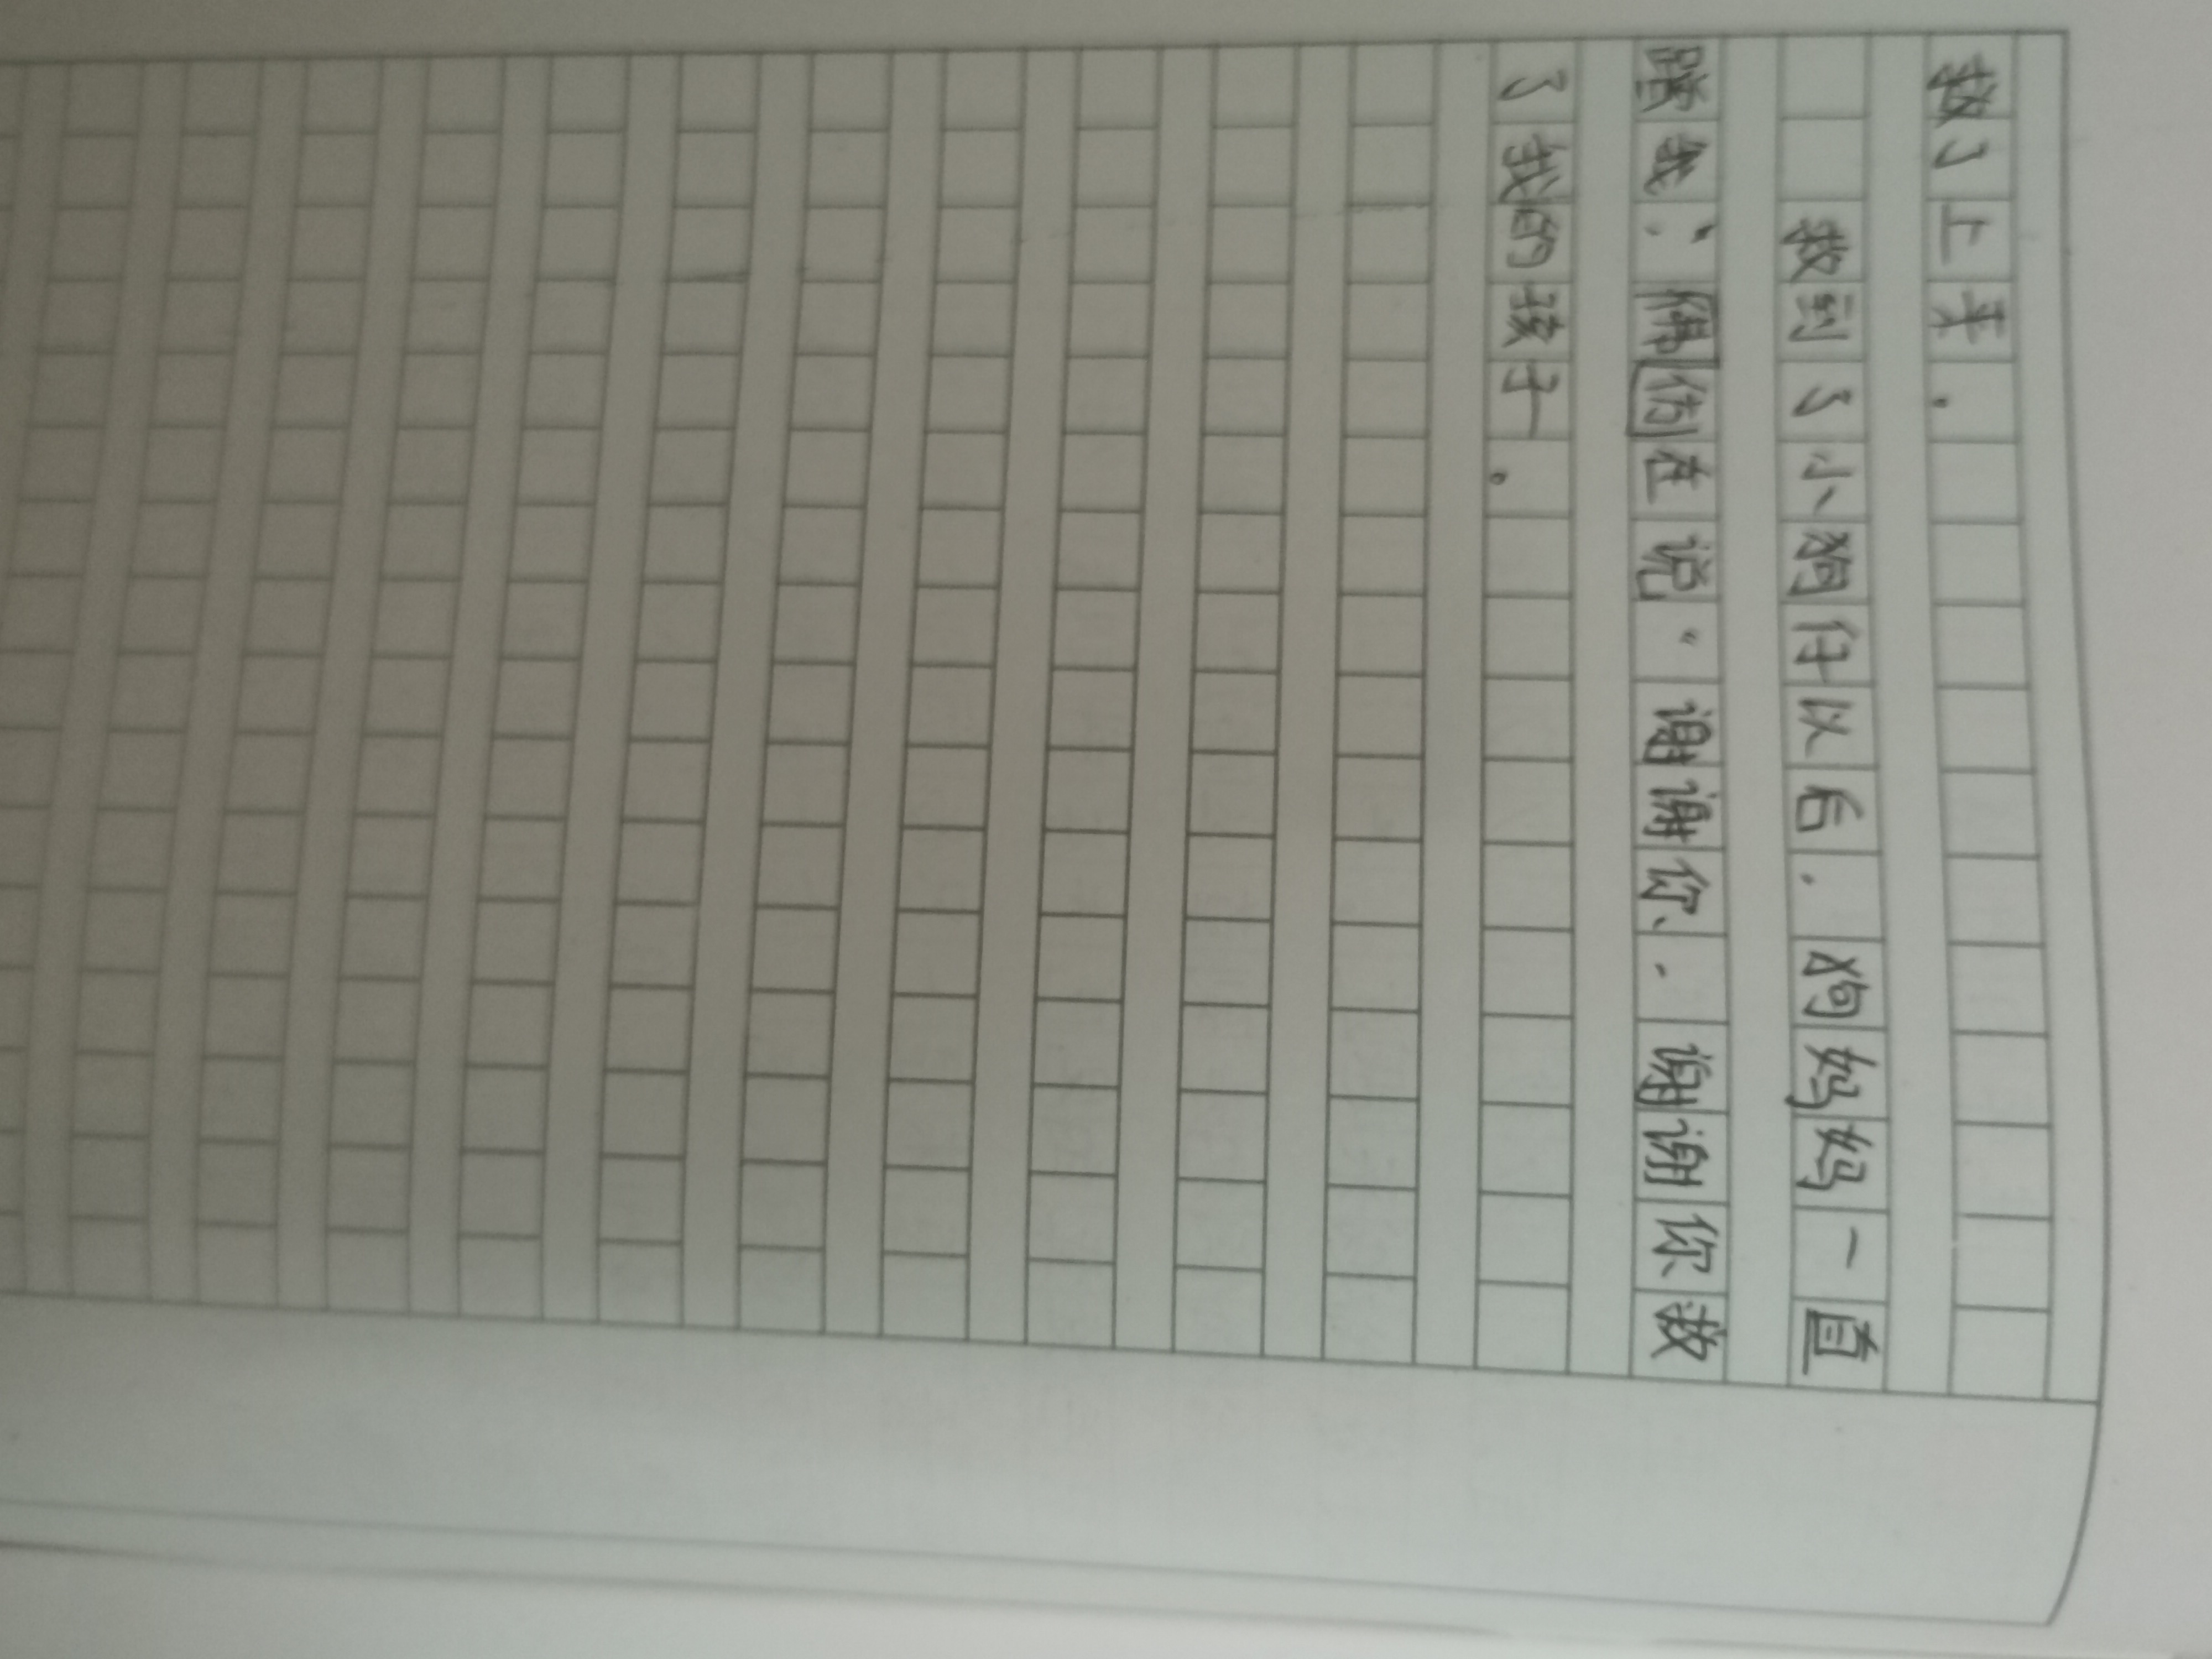 救了上来。
救到了小狗仔以后，狗妈妈一直
蹭我，仿在说“谢谢你，谢谢你救
了我的孩子。